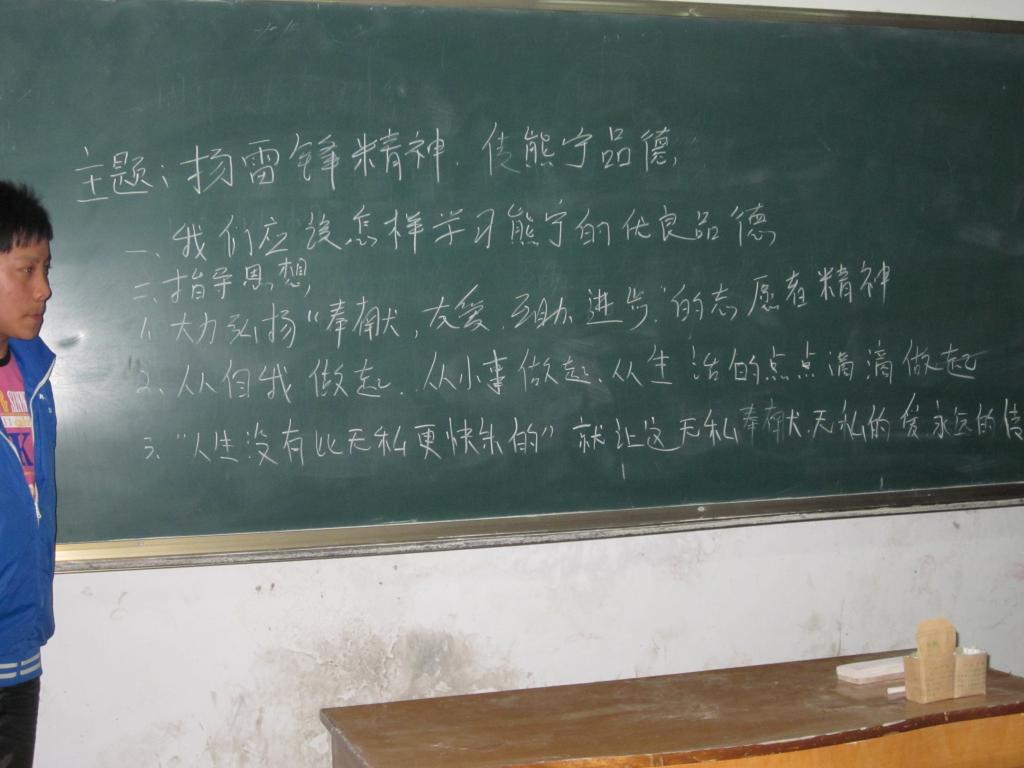 主题：扬雷锋精神.传熊宁品德.
一、我们应该怎样学习熊宁的优良品德
二、指导思想
1、大力弘扬“奉献，友爱.互助.进步”的志愿者精神
2、从自我做起.从小事做起.从生活的点点滴滴做起
3、“人生没有比无私更快乐的”就让这无私奉献.无私的爱永远的传